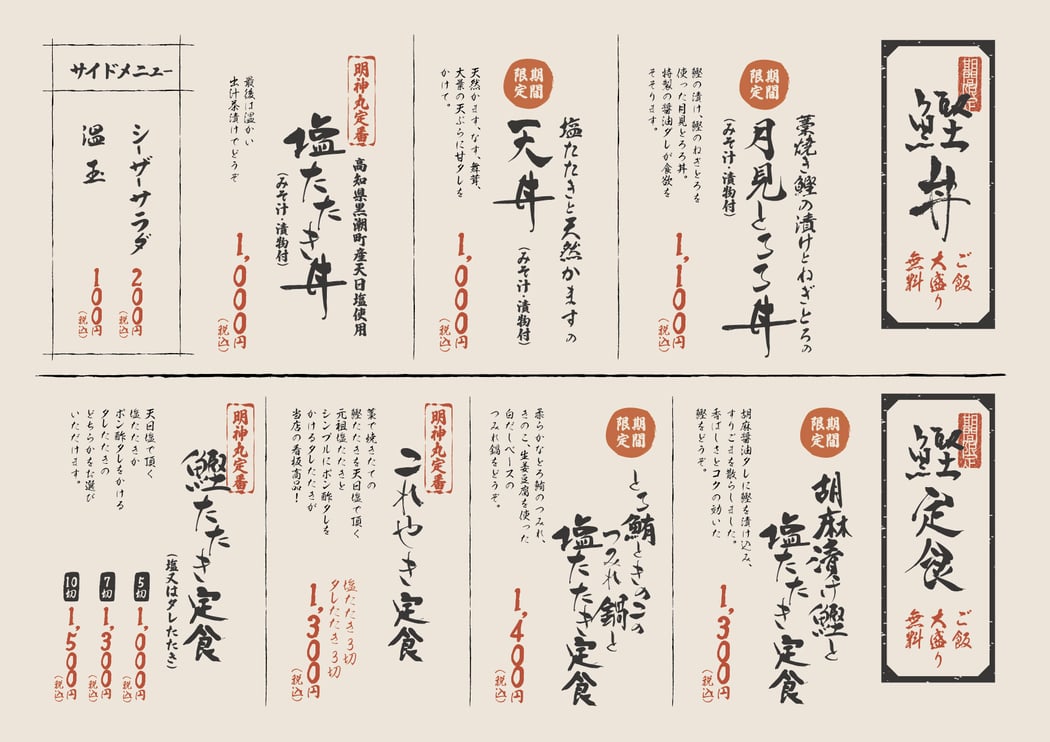 期間限定
鰹丼
ご飯
大盛り
無料
藁焼き鰹の漬けとねぎとろの
月見とろろ丼
(みそ汁・漬物付)
期間
限定
鰹の漬け、鰹のねぎとろを
使った月見とろろ丼。
特製の醤油タレが食欲を
そそります。
1,100円
(税込)
塩たたきと天然かますの
天丼
(みそ汁・漬物付)
期間
限定
天然かます、なす、舞茸、
大葉の天ぷらに甘タレを
かけて。
1,000円
(税込)
明神丸定番
高知県黒潮町産天日塩使用
塩たたき丼
(みそ汁・漬物付)
最後は温かい
出汁茶漬けでどうぞ
1,000円
(税込)
サイドメニュー
シーザーサラダ
200円
(税込)
温玉
100円
(税込)
期間限定
鰹定食
ご飯
大盛り
無料
期間
限定
胡麻漬け鰹と
塩たたき定食
胡麻醤油タレに鰹を漬け込み、
すりごまを散らしました。
香ばしさとコクの効いた
鰹をどうぞ。
1,300円
(税込)
期間
限定
とろ鮪ときのこの
つみれ鍋と
塩たたき定食
柔らかなとろ鮪のつみれ、
きのこ、生姜豆腐を使った
白だしベースの
つみれ鍋をどうぞ。
1,400円
(税込)
明神丸定番
これやき定食
藁で焼きたての
鰹たたきを天日塩で頂く
元祖塩たたきと
シンプルにポン酢タレを
かけるタレたたきが
当店の看板商品!
塩たたき3切
タレたたき3切
1,300円
(税込)
明神丸定番
鰹たたき定食
(塩又はタレたたき)
天日塩で頂く
塩たたきか
ポン酢タレをかける
タレたたきの
どちらかをお選び
いただけます。
5切
1,000円
(税込)
7切
1,300円
(税込)
10切
1,500円
(税込)